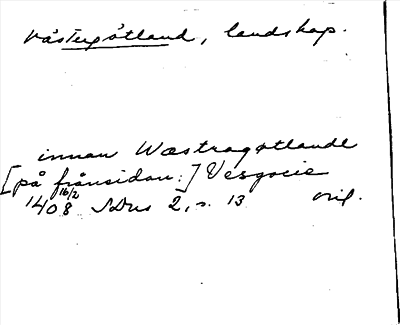 Västergötland, landskap.
innan Wæstragøtlande
[på frånsidan:] Vesgocie
1408 16/2 SDns 2, s. 13 oril.